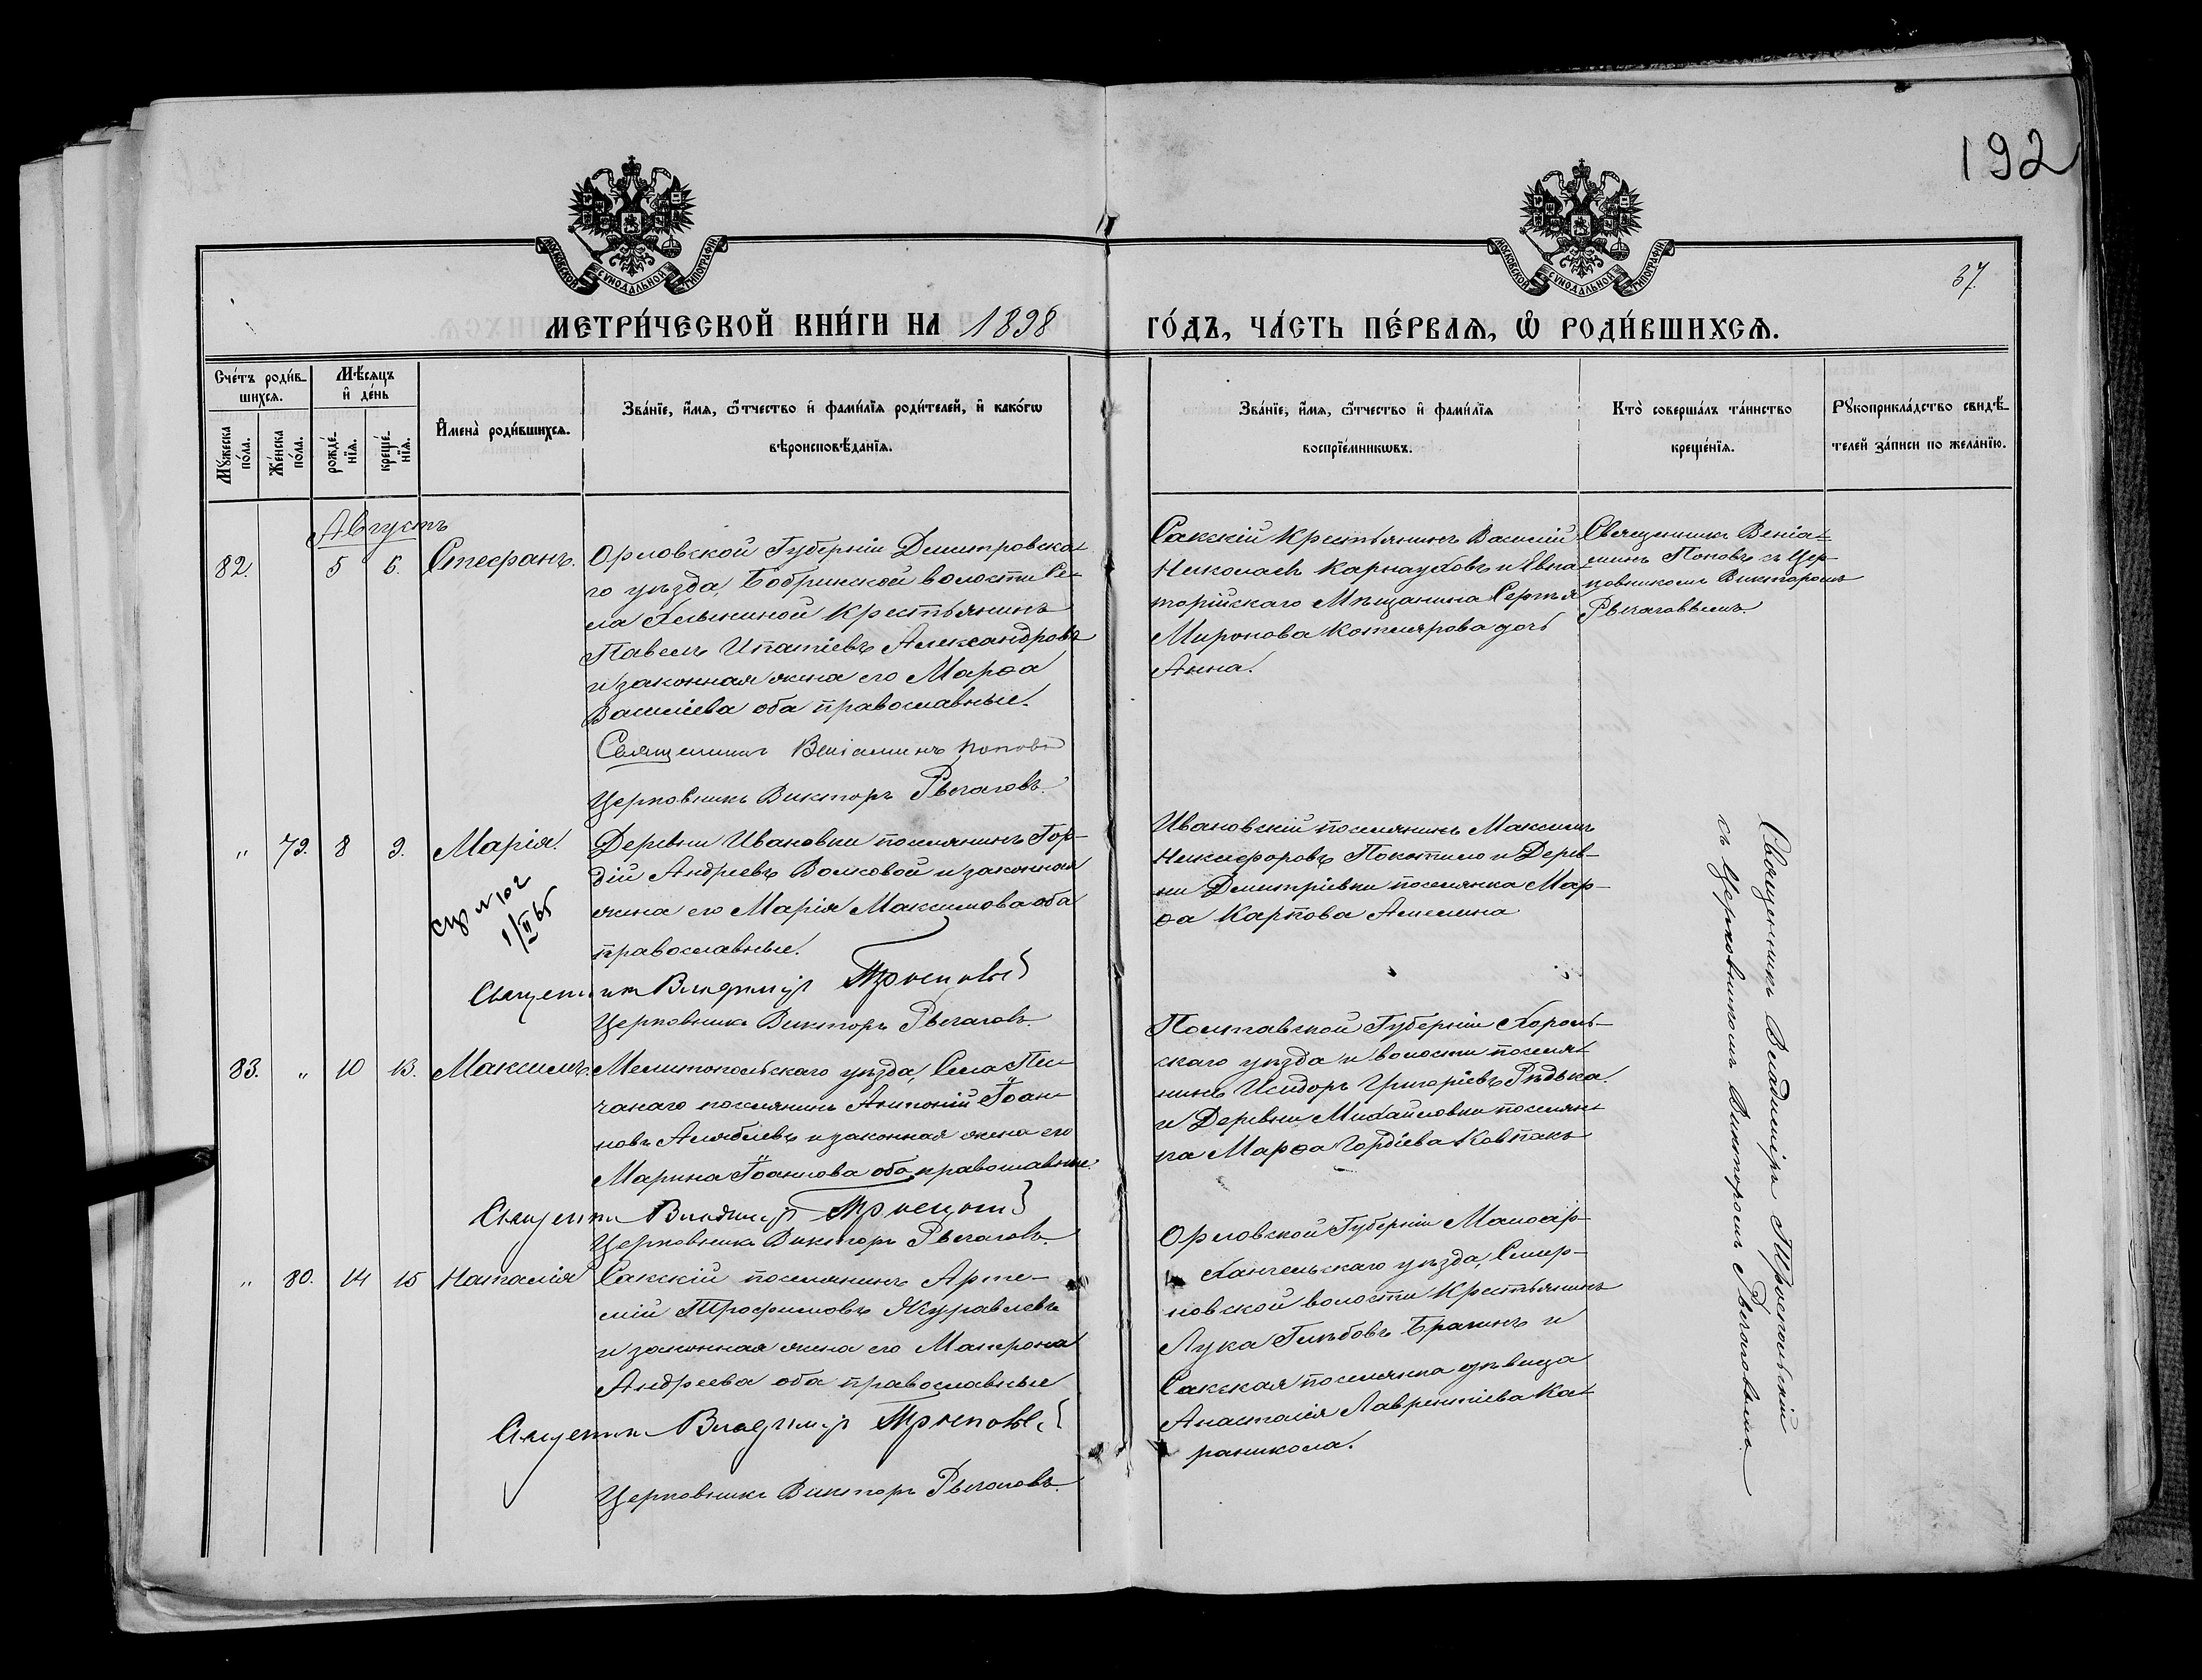 192
37
МОСКОВСКОЙ СѴНОДАЛЬНОЙ ТИПОГРАФІИ
МОСКОВСКОЙ СѴНОДАЛЬНОЙ ТИПОГРАФІИ
МЕТРИ́ЧЕСКОЙ КНИ́ГИ НА 1898 ГО́ДЪ, ЧА́СТЬ ПЕ́РВАѦ, Ѽ РОДИ́ВШИХСѦ.
Сче́тъ роди́в-
шихсѧ.
Мꙋ́жеска по́ла.
Же́нска по́ла.
Мѣ́сѧцъ
и҆ де́нь
рожде́-
нїѧ.
креще́-
нїѧ.
И҆мена̀ роди́вшихсѧ.
Зва́нїе, и҆́мѧ, ѻ҆́тчество и҆ фами́лїѧ роди́телей, и҆ како́гѡ
вѣроисповѣ́данїѧ.
Зва́нїе, и҆́мѧ, ѻ҆́тчество и҆ фами́лїѧ
воспрїе́мникѡвъ.
Кто̀ соверша́лъ та́инство
креще́нїѧ.
Рꙋкоприкла́дство свидѣ́-
телей за́писи по жела́нїю.
Августъ
82. 5 6. Стефанъ.
Орловской Губерніи Дмитровска-
го уѣзда, Бобринской волости Се-
ла Хлыниной Крестьянинъ
Павелъ Ипатіевъ Александровъ
и законная жена его Марѳа
Василіева оба православные.
Священникъ Веніаминъ Поповъ
Церковникъ Викторъ Рычаговъ.
Сакскій Крестьянинъ Василій
Николаевъ Карнауховъ и Евпа-
торійскаго Мѣщанина Сергѣя
Миронова Котлярова дочь
Анна.
Священникъ Веніа-
минъ Поповъ съ Цер-
ковникомъ Викторомъ
Рычаговымъ
„ 79. 8 9. Марія.
спр № 102
1/II 65
Деревни Ивановки поселянинъ Гор-
дій Андреевъ Волковой и законная
жена его Марія Максимова оба
православные.
Священникъ Владиміръ
Церковникъ Викторъ Рычаговъ.
Ивановскій поселянинъ Максимъ
Никифоровъ Покотило и Дерев-
ни Димитріевки поселянка Мар-
ѳа Карпова Амелина
83. „ 10 13. Максимъ.
Мелитопольскаго уѣзда, Села Пе-
чанаго поселянинъ Антоній Іоан-
новъ Алябіевъ и законная жена его
Марина Іоаннова оба православные.
Священникъ Владиміръ
Церковникъ Викторъ Рычаговъ.
Полтавской Губерніи Хороль-
скаго уѣзда и волости поселя-
нинъ Исидоръ Григоріевъ Рѣдька
и Деревни Михайловки поселян-
ка Марѳа Гордіева Ковпакъ
„ 80. 14 15 Наталія
Сакскій поселянинъ Арте-
мій Трофимовъ Журавлевъ
и законная жена его Матрона
Андреева оба православные
Священникъ Владиміръ
Церковникъ Викторъ Рычаговъ.
Орловской Губерніи Малоар-
хангельскаго уѣзда, Смир-
новской волости Крестьянинъ
Лука Глѣбовъ Брагинъ и
Сакская поселянка дѣвица
Анастасія Лаврентіева Ка-
раникола.
Священникъ Владиміръ
съ Церковникомъ Викторомъ Рычаговымъ